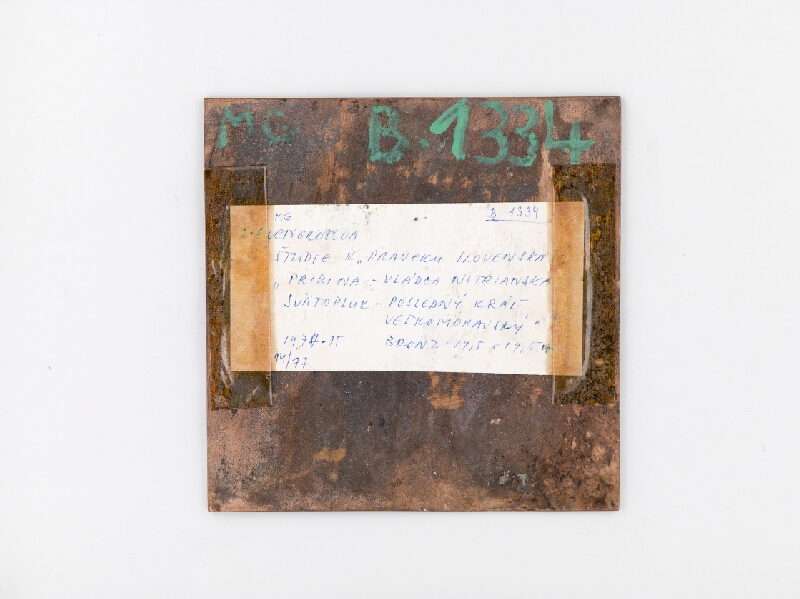 MG B-1334
MG B 1334
ŠTÚDIE K „PRAVEKU SLOVENSKA
„PRIBINA - VLÁDCA NITRIANSKA
SVÄTOPLUK - POSLEDNÝ KRÁĽ
VEĽKOMORAVSKÝ"
BRONZ 19,5 x 19,5
14/77